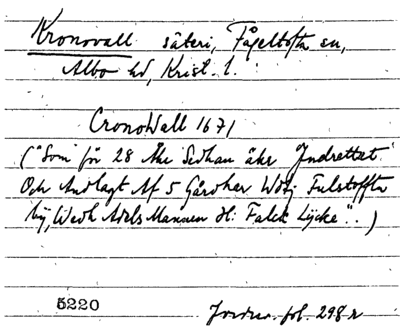 Kronovall säteri, Fågeltofta sn,
Albo hd, Krist. l.
CronoWall 1671
("Som för 28 Åhr Sedhan ähr Indrettat
Och Anlagt Af 5 Gårdhar Widh Fulltofta
by, Wedh Adels Mannen H: Falck Lycke".)
5220 Jordeb. fol. 298 r